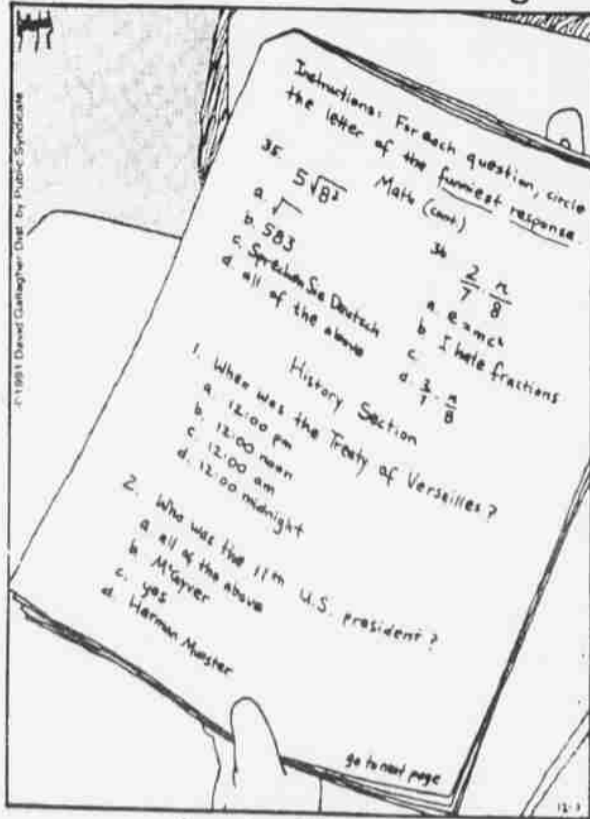 ©1991 David Gallagher Dist. by Public Syndicate
Instructions: For each question, circle
the letter of the funniest response.
Math (cont.)
35.
5√8²
a. √
b. 583
c. Sprechen Sie Deutsch
d. all of the above
36
2/7 · n/8
a. e=mc²
b I hate fractions
c.
d. 2/7 · n/8
History Section
1. When was the Treaty of Versailles?
a. 12:00 pm
b. 12:00 noon
c. 12:00 am
d. 12:00 midnight
2. Who was the 11th U.S. president?
a. all of the above
b. McGyver
c. yes
d. Herman Munster
go to next page